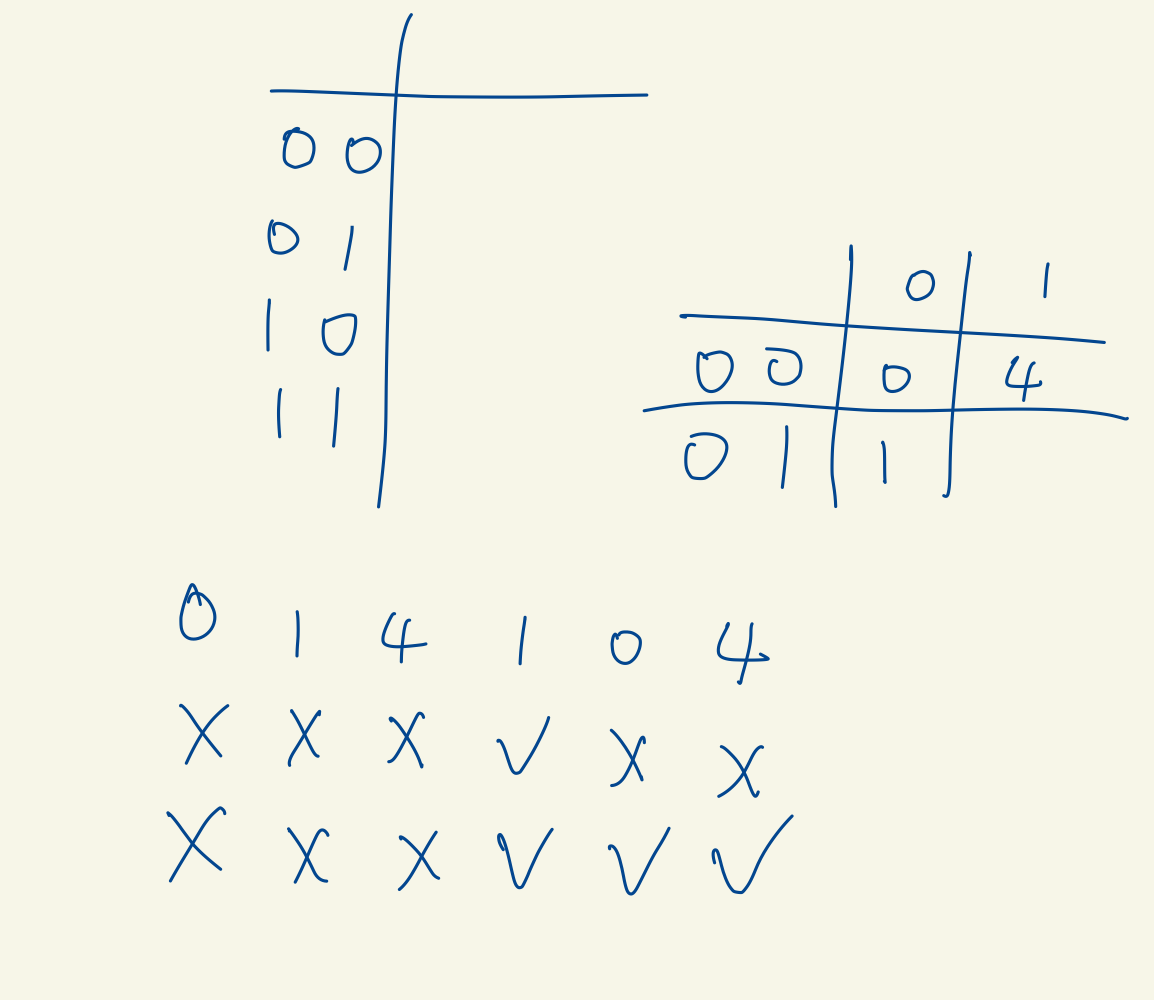 0 0
0 1
1 0
1 1
0 1
0 0 0 4
0 1 1
0 1 4 1 0 4
X X X ✓ X X
X X X ✓ ✓ ✓